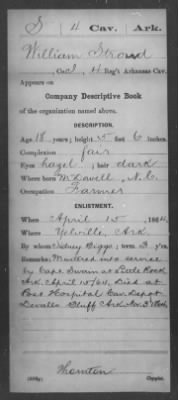 S 4 Cav. Ark.
William Stroud
Co. I, 4 Reg't Arkansas Cav.
Appears on
Company Descriptive Book
of the organization named above.
DESCRIPTION.
Age 18 years; height 5 feet 6 inches.
Complexion fair
Eyes hazel; hair dark
Where born McDowell, N.C.
Occupation Farmer
ENLISTMENT.
When April 15, 1864.
Where Yelville, Ark.
By whom Sidney Biggs; term 3 y'rs.
Remarks: Mustered into service
by Capt. Swain at Little Rock
Ark. April 15/64. Died at
Post Hospital Cav. Depot
Devalls Bluff Ark. Nov. 3 1864
Thornton
Copyist.